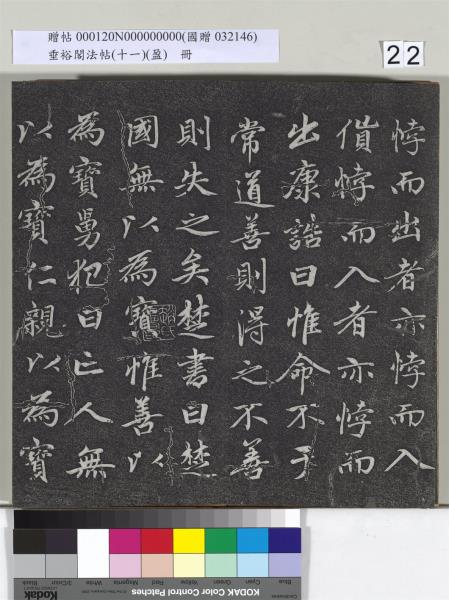 贈帖 000120N000000000(國贈 032146)
垂裕閣法帖(十一)(盈) 冊
22
悖而出者亦悖而入
偩悖而入者亦悖而
出康誥曰惟命不于
常道善則得之不善
則失之矣楚書曰楚
國無以為寶惟善以
為寶舅犯曰亡人無
以為寶仁親以為寶
Blue Cyan Green Yellow Red Magenta White 3/Color Black
KODAK Color Control Patches
Kodak